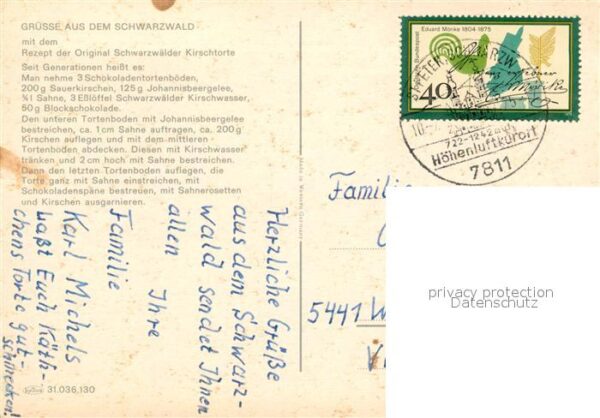 GRÜSSE AUS DEM SCHWARZWALD
mit dem
Rezept der Original Schwarzwälder Kirschtorte
Seit Generationen heißt es:
Man nehme 3 Schokoladentortenböden,
200 g Sauerkirschen, 125 g Johannisbeergelee,
¾ l Sahne, 3 Eßlöffel Schwarzwälder Kirschwasser,
50 g Blockschokolade.
Den unteren Tortenboden mit Johannisbeergelee
bestreichen, ca. 1 cm Sahne auftragen, ca. 200 g
Kirschen auflegen und mit dem mittleren
Tortenboden abdecken. Diesen mit Kirschwasser
tränken und 2 cm hoch mit Sahne bestreichen.
Dann den letzten Tortenboden auflegen, die
Torte ganz mit Sahne einstreichen, mit
Schokoladenspäne bestreuen, mit Sahnerosetten
und Kirschen ausgarnieren.
Herzliche Grüße
aus dem Schwarz-
wald sendet Ihnen
allen Ihre
Familie
Karl Michels
Laßt Euch Käth-
chens Torte gut
schmecken!
31.036.130
Eduard Mörike 1804-1875
40
ST. PETER, SCHWARZW
722-1242 m
Höhenluftkurort
7811
Familie
5441
privacy protection
Datenschutz